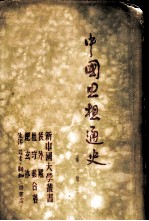 中國思想通史
新中國大學叢書
侯外廬
杜守素合著
紀玄冰
生活·讀書·新知